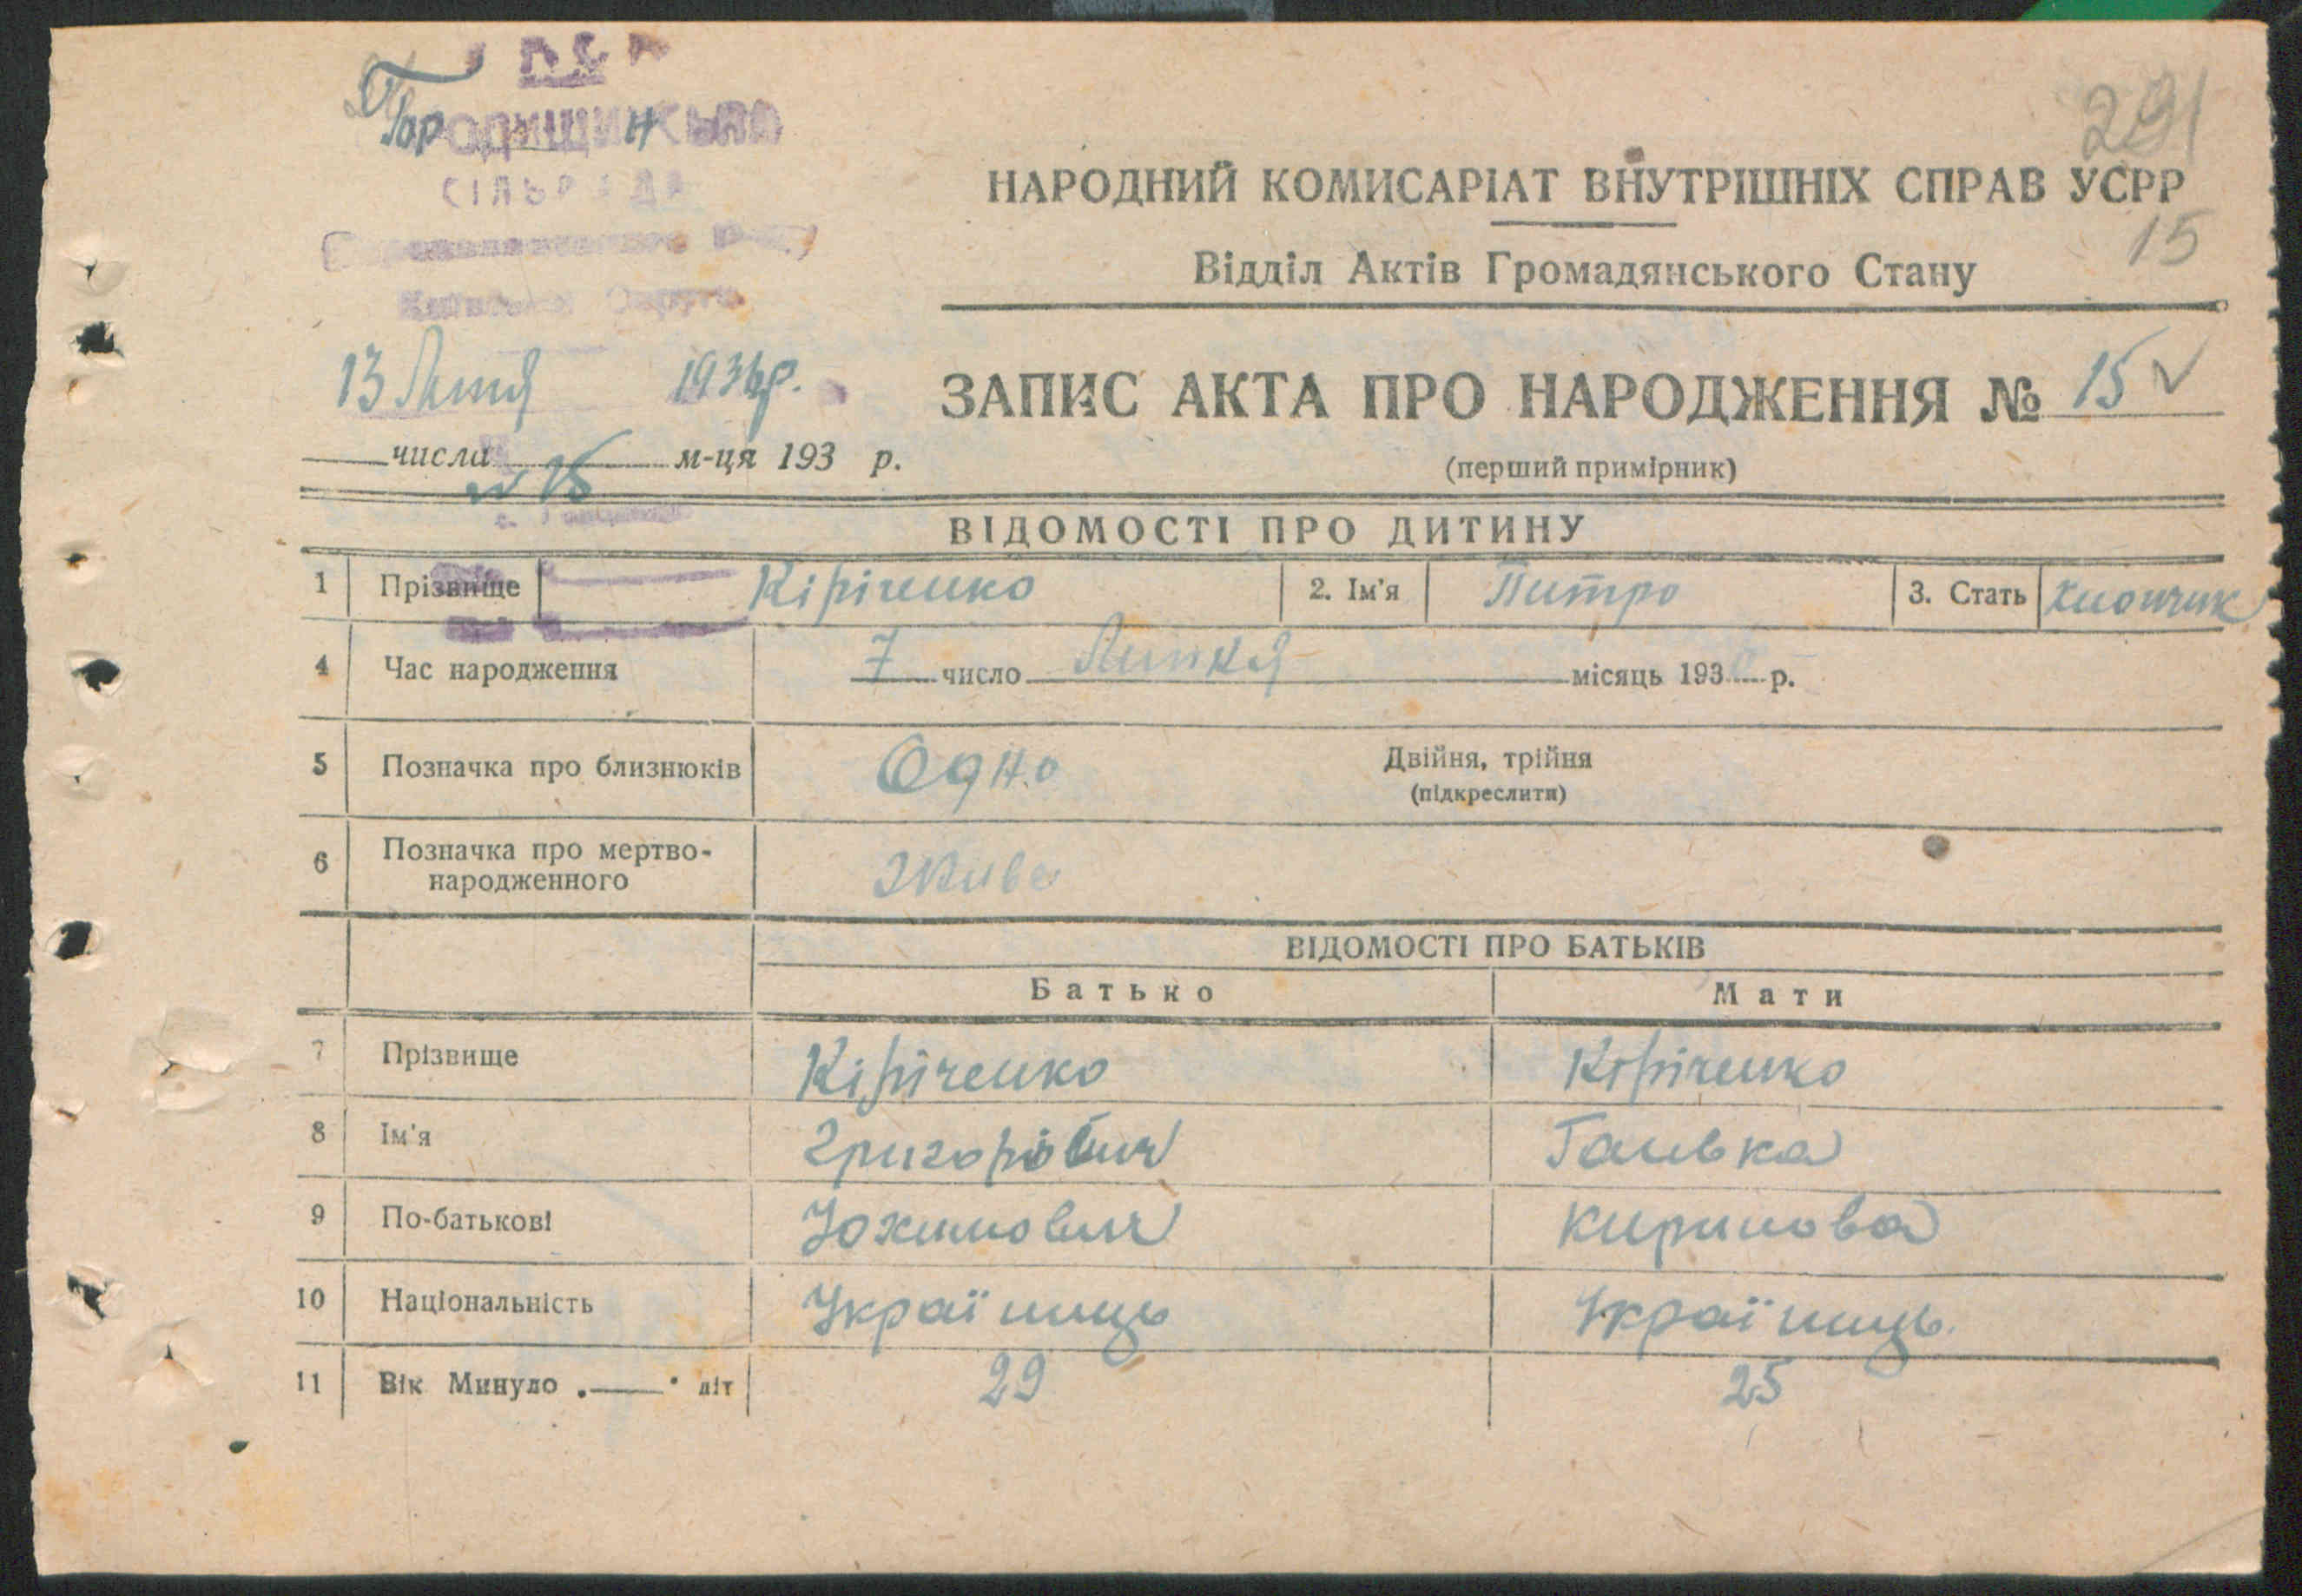 УСРР
Городищинсько
СІЛЬРАДА
291
НАРОДНИЙ КОМИСАРІАТ ВНУТРІШНІХ СПРАВ УСРР
15
Відділ Актів Громадянського Стану
13 Липня 193 р.
ЗАПИС АКТА ПРО НАРОДЖЕННЯ № 15
числа м-ця 193 р.
№ 15
(перший примірник)
ВІДОМОСТІ ПРО ДИТИНУ
1 Прізвище Кіріченко 2. Ім'я Питро 3. Стать хлопчик
4 Час народження 7 число Липня місяць 193 р.
5 Позначка про близнюків Одно Двійня, трійня
(підкреслити)
6 Позначка про мертво-
народженного Живе
ВІДОМОСТІ ПРО БАТЬКІВ
Батько Мати
7 Прізвище Кіріченко Кіріченко
8 Ім'я Григорівич Ганька
9 По-батькові Юхимович Кирилова
10 Національність Україниць Україниць
11 Вік Минуло . — . літ 29 25